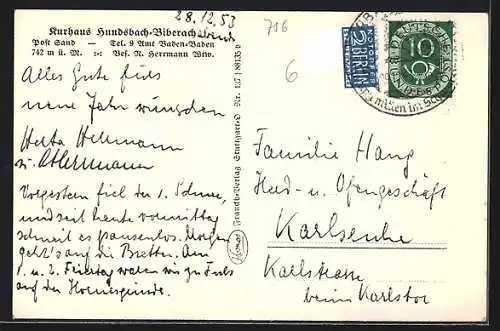 28.12.53
abends
706
Kurhaus Hundsbach-Biberach
Post Sand — Tel. 9 Amt Baden-Baden
742 m ü. M. — Bes. R. Herrmann Wtw.
6
NOTOPFER
2 BERLIN
STEUERMARKE
DEUTSCHE
10
BUNDESPOST
mitten im
Alles Gute fürs
neue Jahr wünschen
Herta Hermann
u. O. Herrmann
Vorgestern fiel der 1. Schnee,
und seit heute vormittag
schneit es pausenlos. Morgen
geht's auf die Bretter. Am
1. u. 2. Feiertag waren wir zu Fuß
auf der Hornisgrinde.
Franckh-Verlag Stuttgart-O Nr. 127/88135 b
Familie Haug
Herd- u. Ofengeschäft
Karlsruhe
Karlstrasse
beim Karlstor